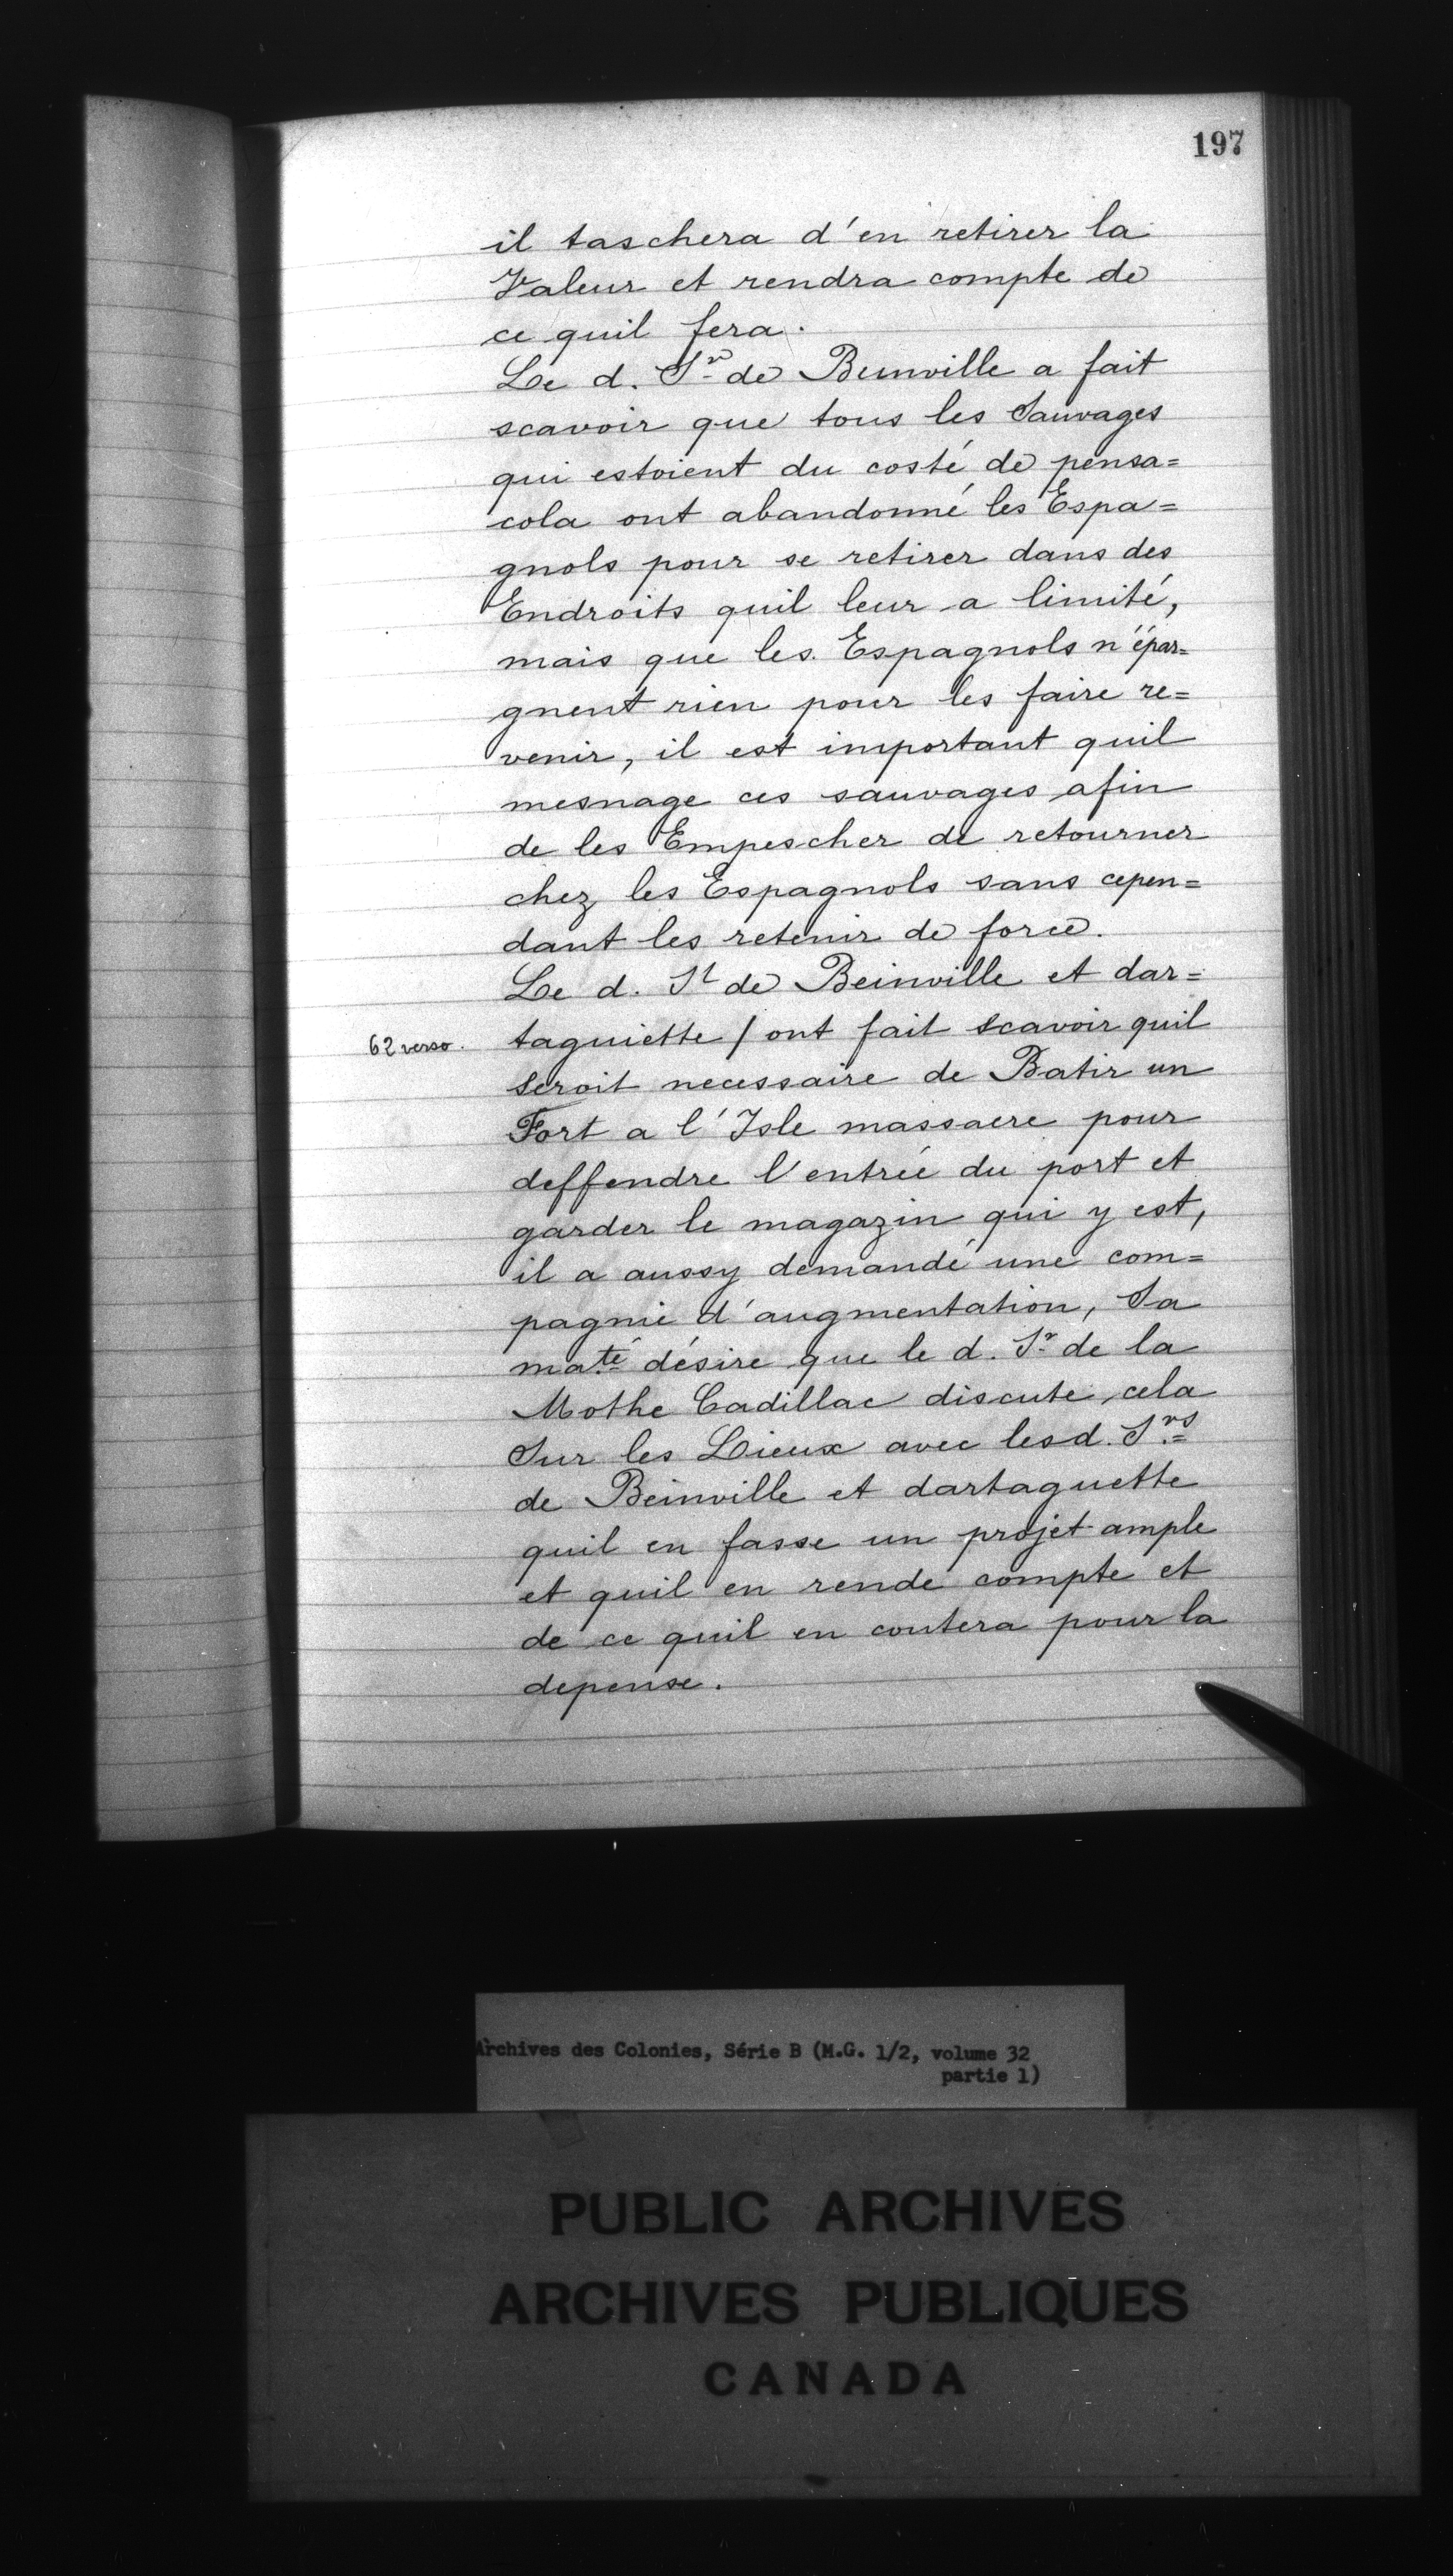 197
il taschera d'en retirer la
Valeur et rendra compte de
ce quil fera.
Le d. Sr de Beinville a fait
scavoir que tous les Sauvages
qui estoient du costé de pensa=
cola ont abandonné les Espa=
gnols pour se retirer dans des
Endroits quil leur a limité,
mais que les Espagnols n'épar=
gnent rien pour les faire re=
venir, il est important quil
mesnage ces sauvages afin
de les Empescher de retourner
chez les Espagnols sans cepen=
dant les retenir de force.
Le d. St de Beinville et dar=
62 verso. taguiette / ont fait scavoir quil
seroit necessaire de Batir un
Fort a l'Isle massacre pour
deffendre l'entrée du port et
garder le magazin qui y est,
il a aussy demandé une com=
pagnie d'augmentation, Sa
maté désire que le d. Sr de la
Mothe Cadillac discute cela
Sur les Lieux avec lesd. Srs
de Beinville et dartaguette
quil en fasse un projet ample
et quil en rende compte et
de ce quil en coutera pour la
depense.
Archives des Colonies, Série B (M.G. 1/2, volume 32
partie 1)
PUBLIC ARCHIVES
ARCHIVES PUBLIQUES
CANADA